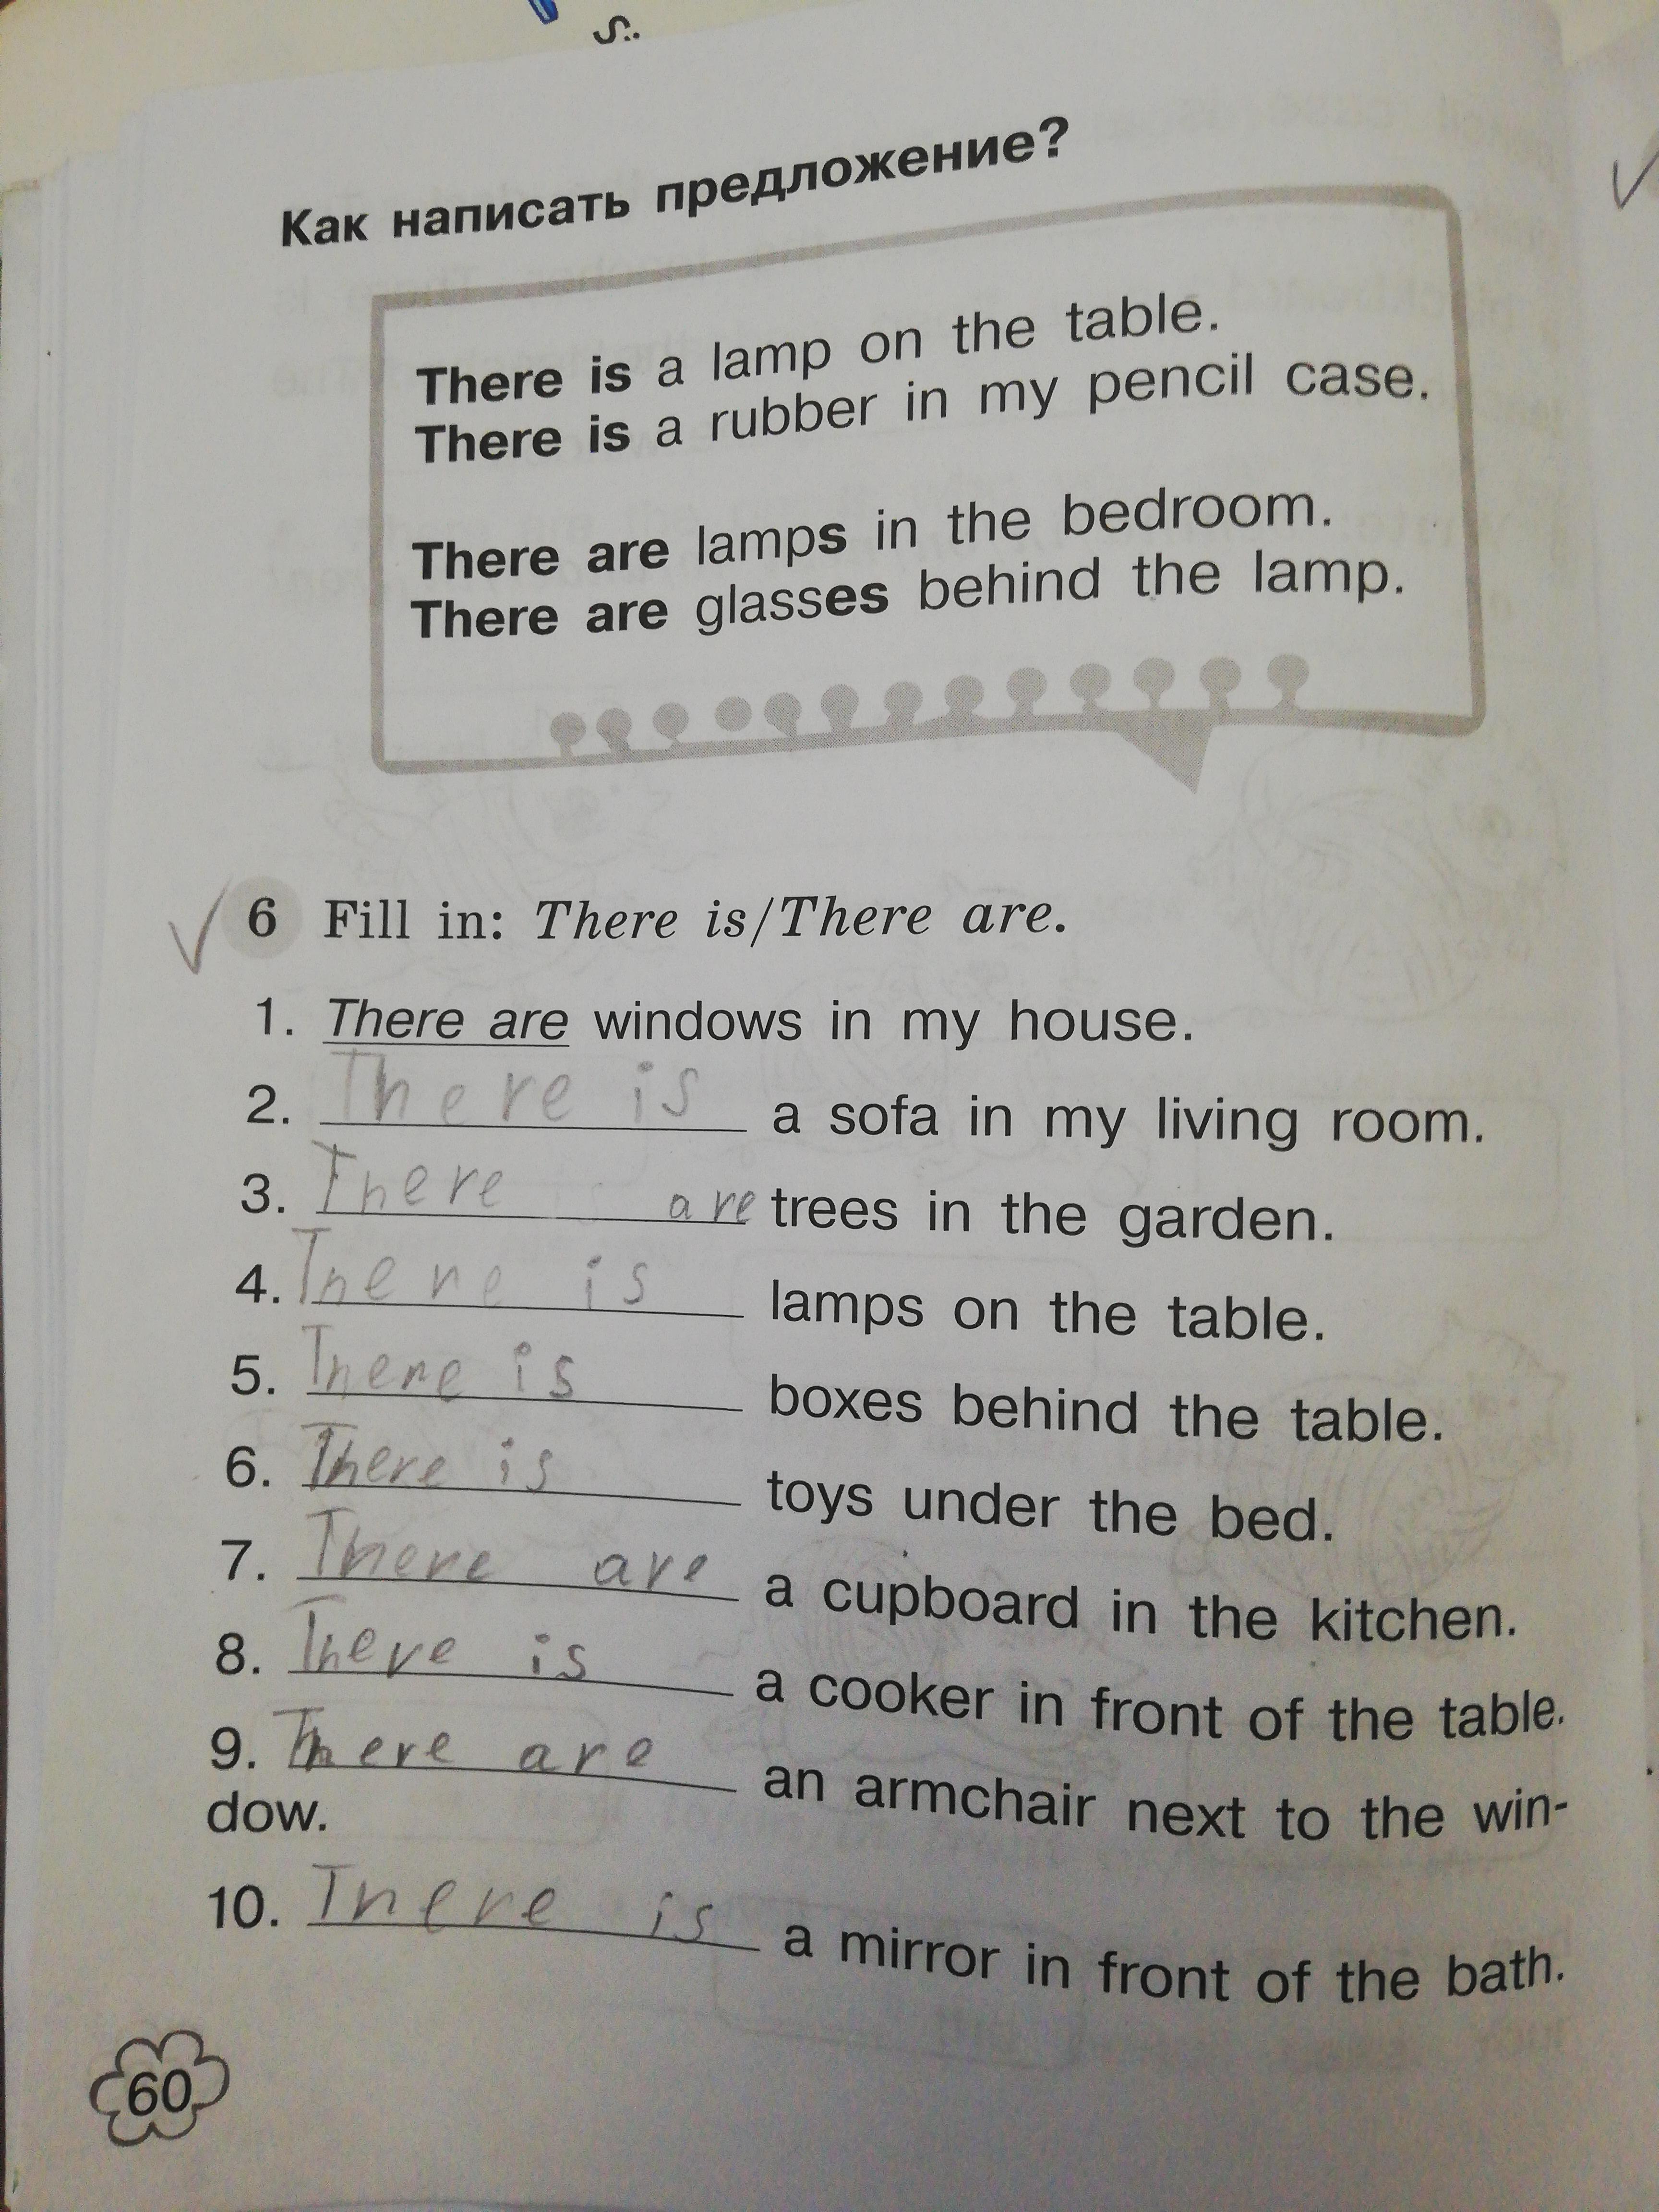 Как написать предложение?
There is a lamp on the table.
There is a rubber in my pencil case.
There are lamps in the bedroom.
There are glasses behind the lamp.
6 Fill in: There is/There are.
1. There are windows in my house.
2. There is a sofa in my living room.
3. There are trees in the garden.
4. There is lamps on the table.
5. There is boxes behind the table.
6. There is toys under the bed.
7. There are a cupboard in the kitchen.
8. There is a cooker in front of the table.
9. There are an armchair next to the win-
dow.
10. There is a mirror in front of the bath.
60